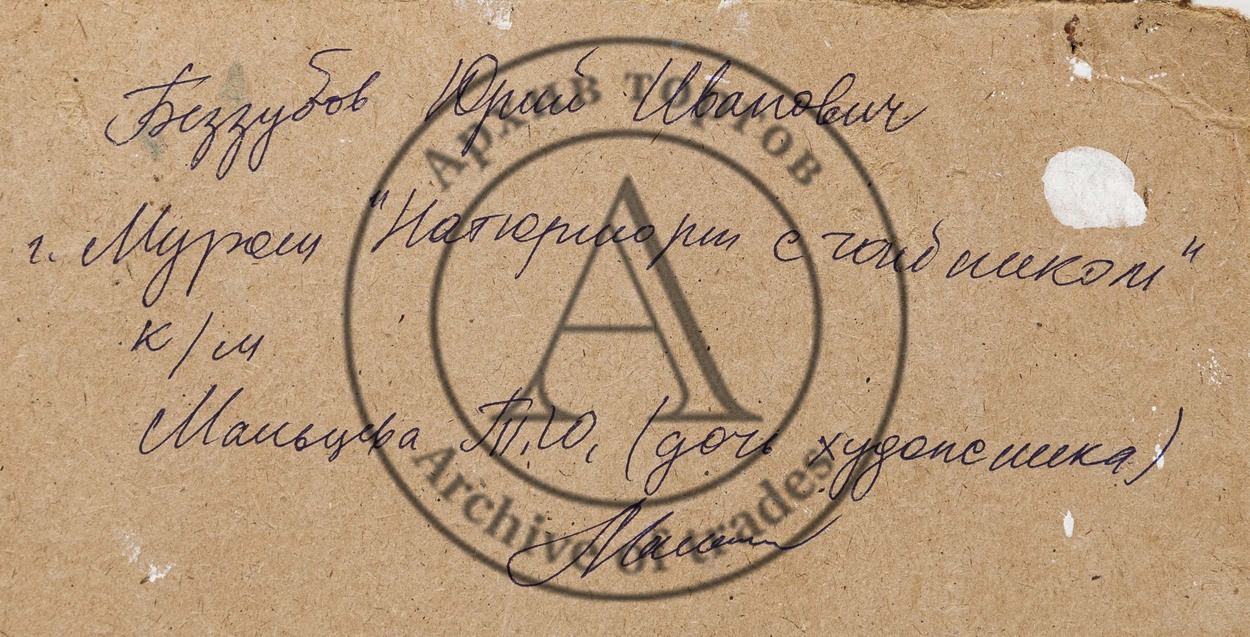 Беззубов Юрий Иванович
г. Муром "Натюрморт с чайником"
к/м
Мальцева Т.Ю. (дочь художника)
Архив торгов
Archive of trades